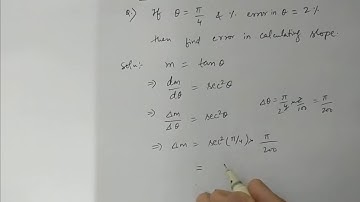 Q.) If θ = π/4 & % error in θ = 2%
then find error in calculating slope.
Soln:- m = tanθ
⇒ dm/dθ = sec²θ
⇒ Δm/Δθ = sec²θ
Δθ = π/4 × 2/100 = π/200
⇒ Δm = sec²(π/4) × π/200
=